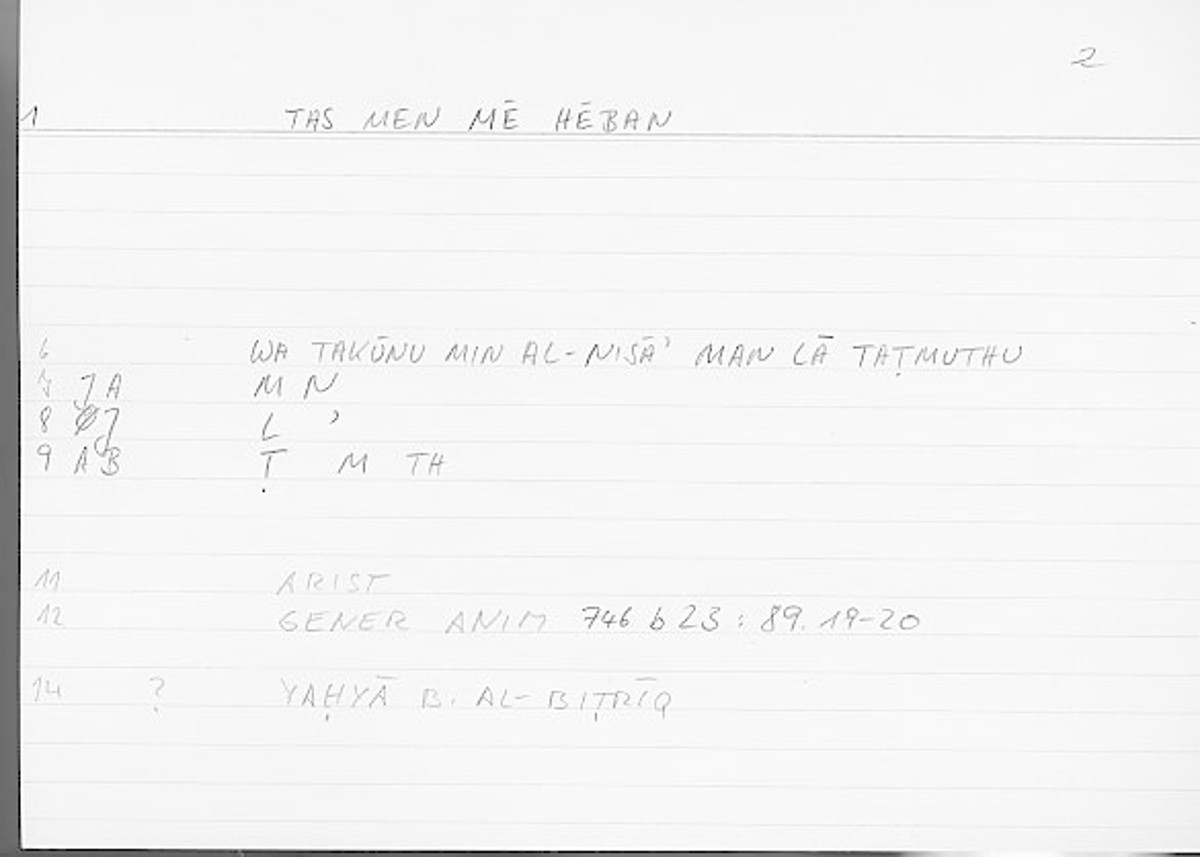 2
1 TAS MEN MĒ HĒBAN
6 WA TAKŪNU MIN AL-NISĀʾ MAN LĀ TAṬMUTHU
7 JA M N
8 J L ʾ
9 AB Ṭ M TH
11 ARIST
12 GENER ANIM 746 b 23 : 89. 19-20
14 ? YAḤYĀ B. AL-BIṬRĪQ